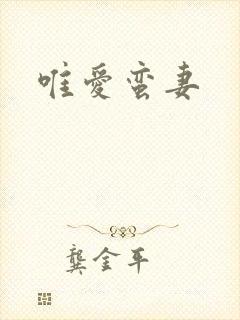 唯爱蛮妻
龚金平